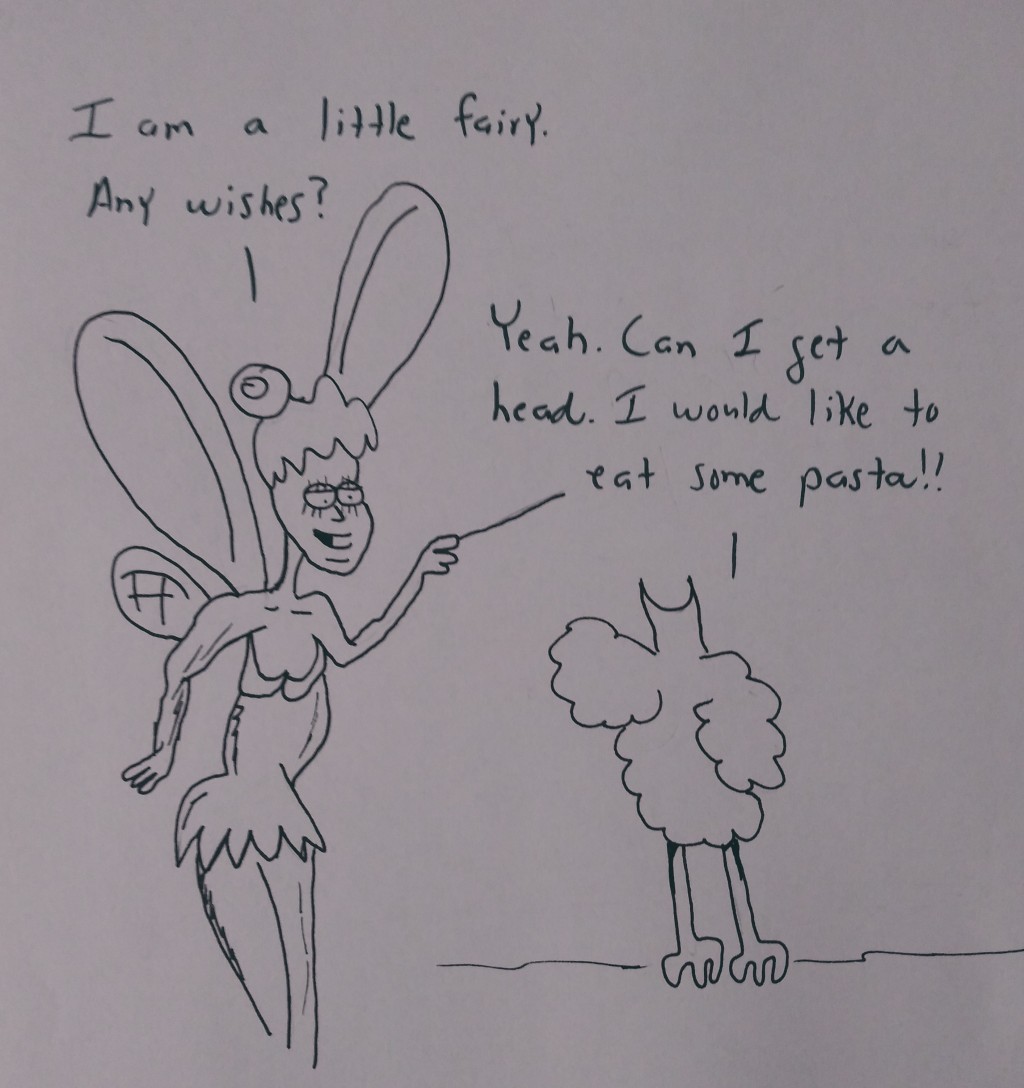 I am a little fairy.
Any wishes?
Yeah. Can I get a
head. I would like to
eat some pasta!!